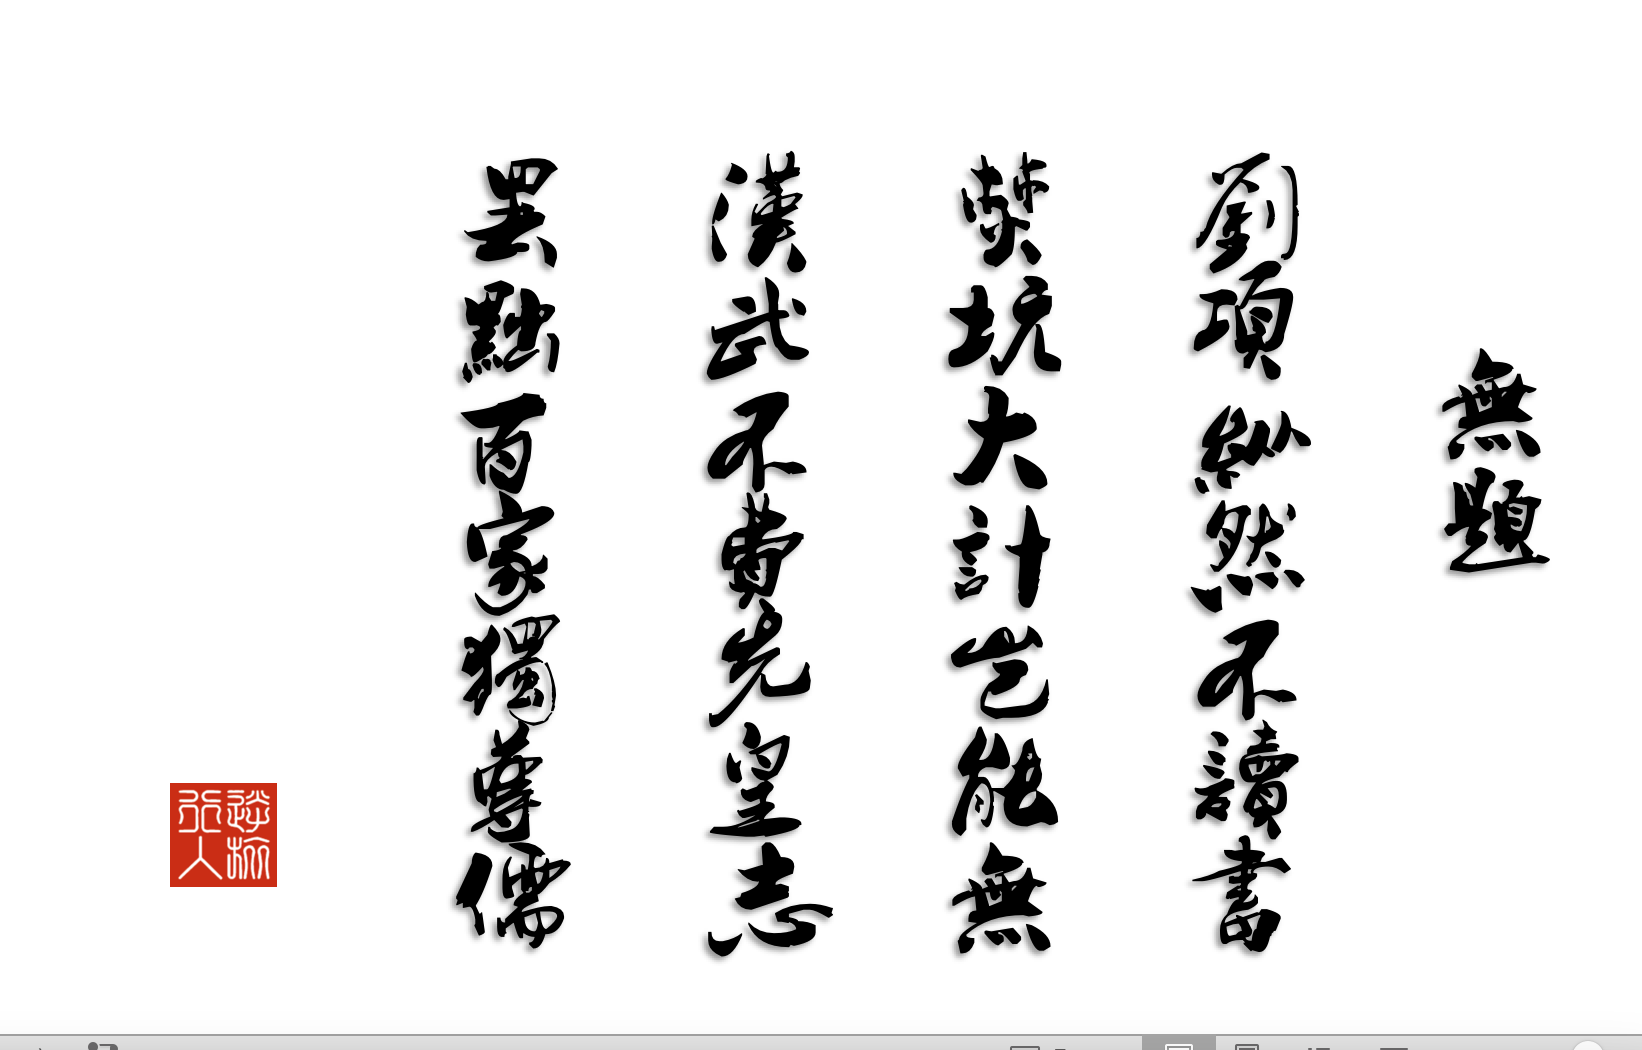 無題
劉項纵然不讀書
焚坑大計岂能無
漢武不費先皇志
罢黜百家獨尊儒
逆旅行人